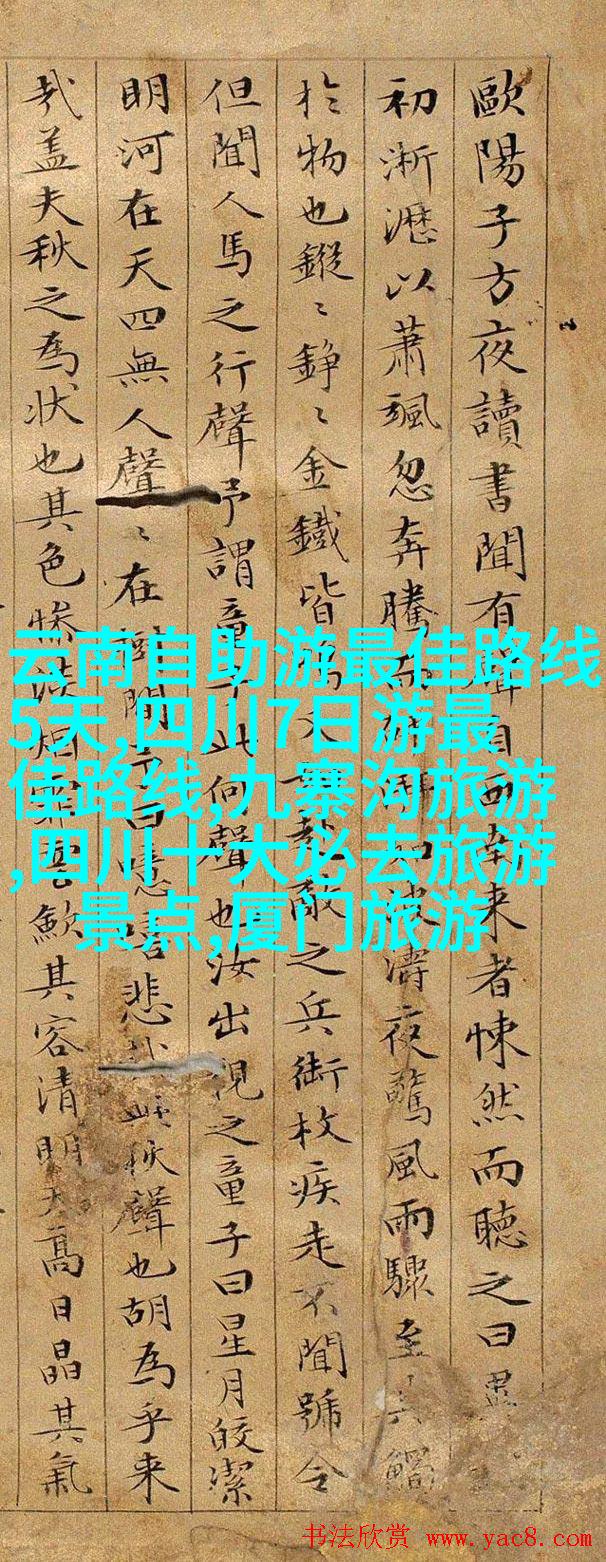 歐陽子方夜讀書聞有聲自西南来者悚然而聽之曰異
初淅瀝以蕭颯忽奔騰而砰湃如波濤夜驚風雨驟至其觸
於物也鏦〻錚〻金鐵皆鳴又如赴敵之兵銜枚疾走不聞號令
但聞人馬之行聲予謂童子此何聲也汝出視之童子曰星月皎潔
明河在天四無人聲〻在樹間予曰噫嘻悲哉此秋聲也胡為乎来
哉盖夫秋之為状也其色惨淡烟霏雲歛其容清明天高日晶其氣
云南自助游最佳路线
5天,四川7日游最
佳路线,九寨沟旅游
,四川十大必去旅游
景点,厦门旅游
书法欣赏 www.yac8.com